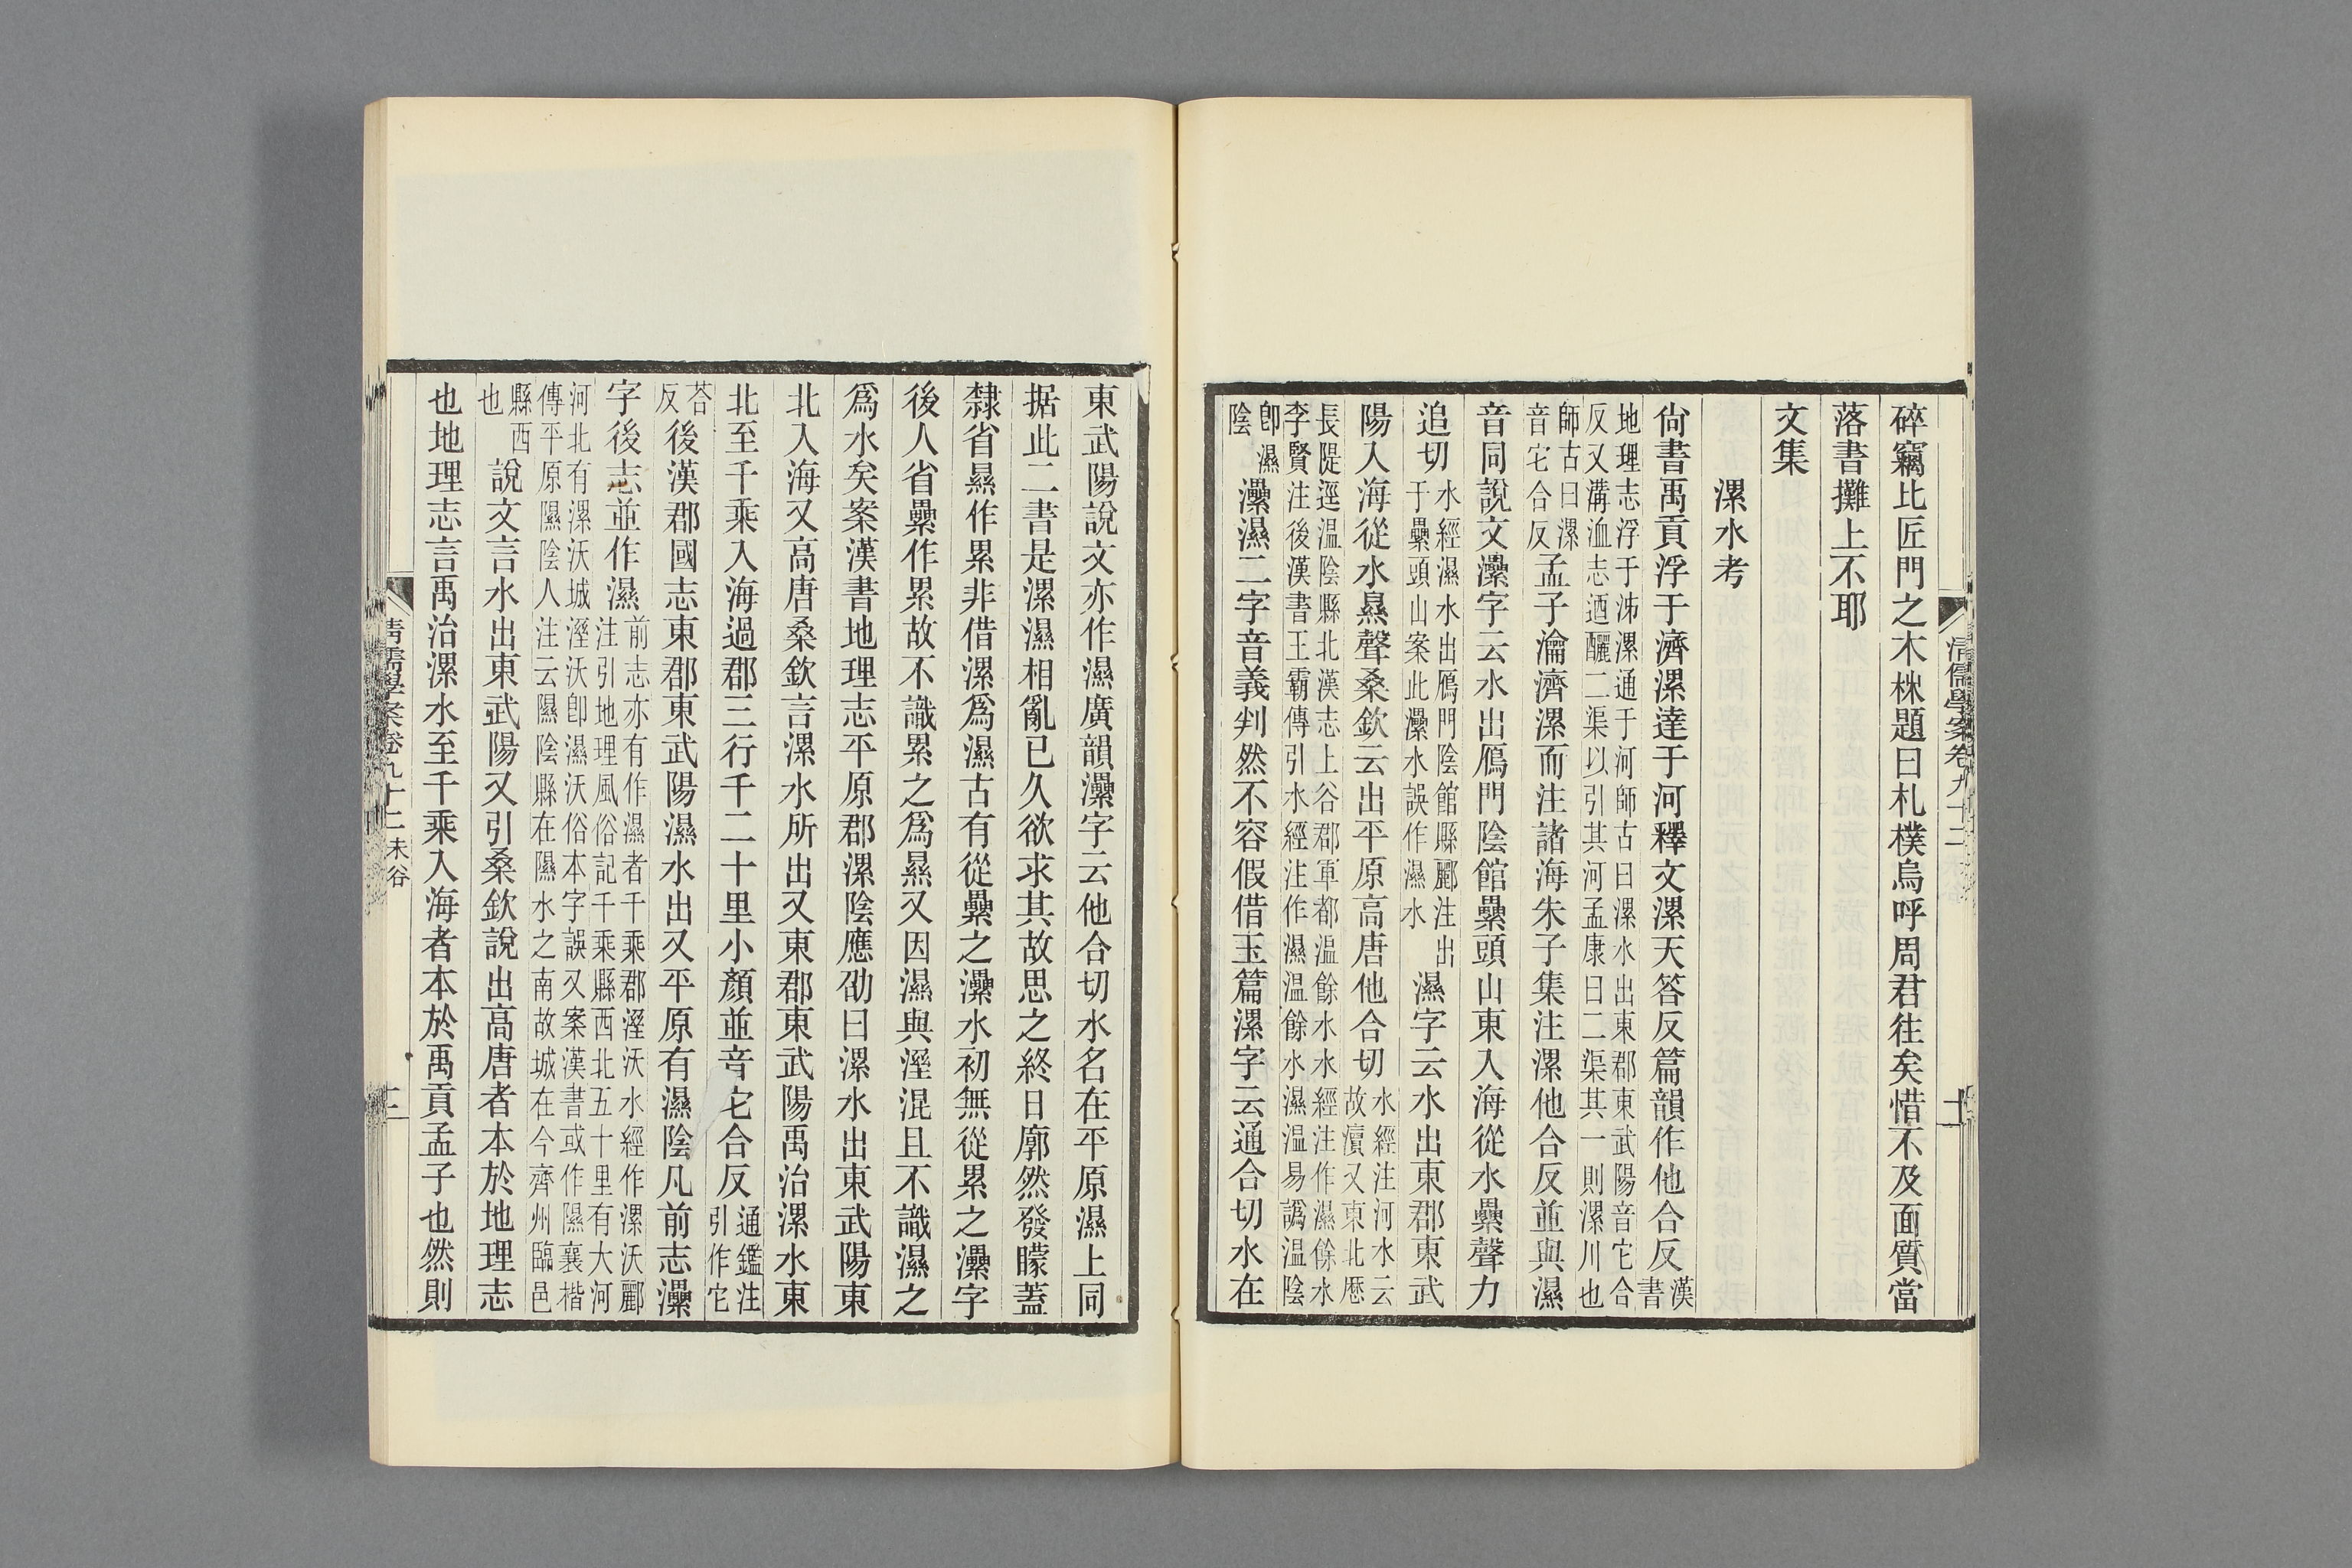 碎竊比匠門之木柹題曰札樸烏呼周君往矣惜不及面質當
落書攤上不耶
文集
漯水考
尙書禹貢浮于濟漯達于河釋文漯天答反篇韻作他合反漢書
地理志浮于泲漯通于河師古曰漯水出東郡東武陽音它合
反又溝洫志迺釃二渠以引其河孟康曰二渠其一則漯川也
師古曰漯音它合反孟子瀹濟漯而注諸海朱子集注漯他合反並與濕
音同說文灅字云水出鴈門陰館纍頭山東入海從水纍聲力
追切水經濕水出鴈門陰館縣酈注出于纍頭山案此灅水誤作濕水濕字云水出東郡東武
陽入海從水㬎聲桑欽云出平原高唐他合切水經注河水云故瀆又東北歷
長隄逕溫陰縣北漢志上谷郡軍都溫餘水水經注作濕餘水
李賢注後漢書王霸傳引水經注作濕温餘水濕温易譌温陰
卽濕陰灅濕二字音義判然不容假借玉篇漯字云通合切水在
東武陽說文亦作濕廣韻灅字云他合切水名在平原濕上同
据此二書是漯濕相亂已久欲求其故思之終日廓然發矇蓋
隸省㬎作累非借漯爲濕古有從纍之灅水初無從累之灅字
後人省纍作累故不識累之爲㬎又因濕與溼混且不識濕之
爲水矣案漢書地理志平原郡漯陰應劭曰漯水出東武陽東
北入海又高唐桑欽言漯水所出又東郡東武陽禹治漯水東
北至千乘入海過郡三行千二十里小顏並音它合反通鑑注引作它
荅反後漢郡國志東郡東武陽濕水出又平原有濕陰凡前志灅
字後志並作濕前志亦有作濕者千乘郡溼沃水經作漯沃酈注引地理風俗記千乘縣西北五十里有大河
河北有漯沃城溼沃卽濕沃俗本字誤又案漢書或作隰襄楷傳平原隰陰人注云隰陰縣在隰水之南故城在今齊州臨邑
縣西也說文言水出東武陽又引桑欽說出高唐者本於地理志
也地理志言禹治漯水至千乘入海者本於禹貢孟子也然則
清儒學案卷九十二
清儒學案卷九十二未谷